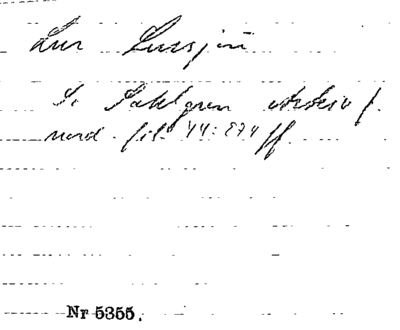 Lur Lursjön
S. Sahlgren Arkiv f.
nord. fil. 44:274 ff.
Nr 5355.